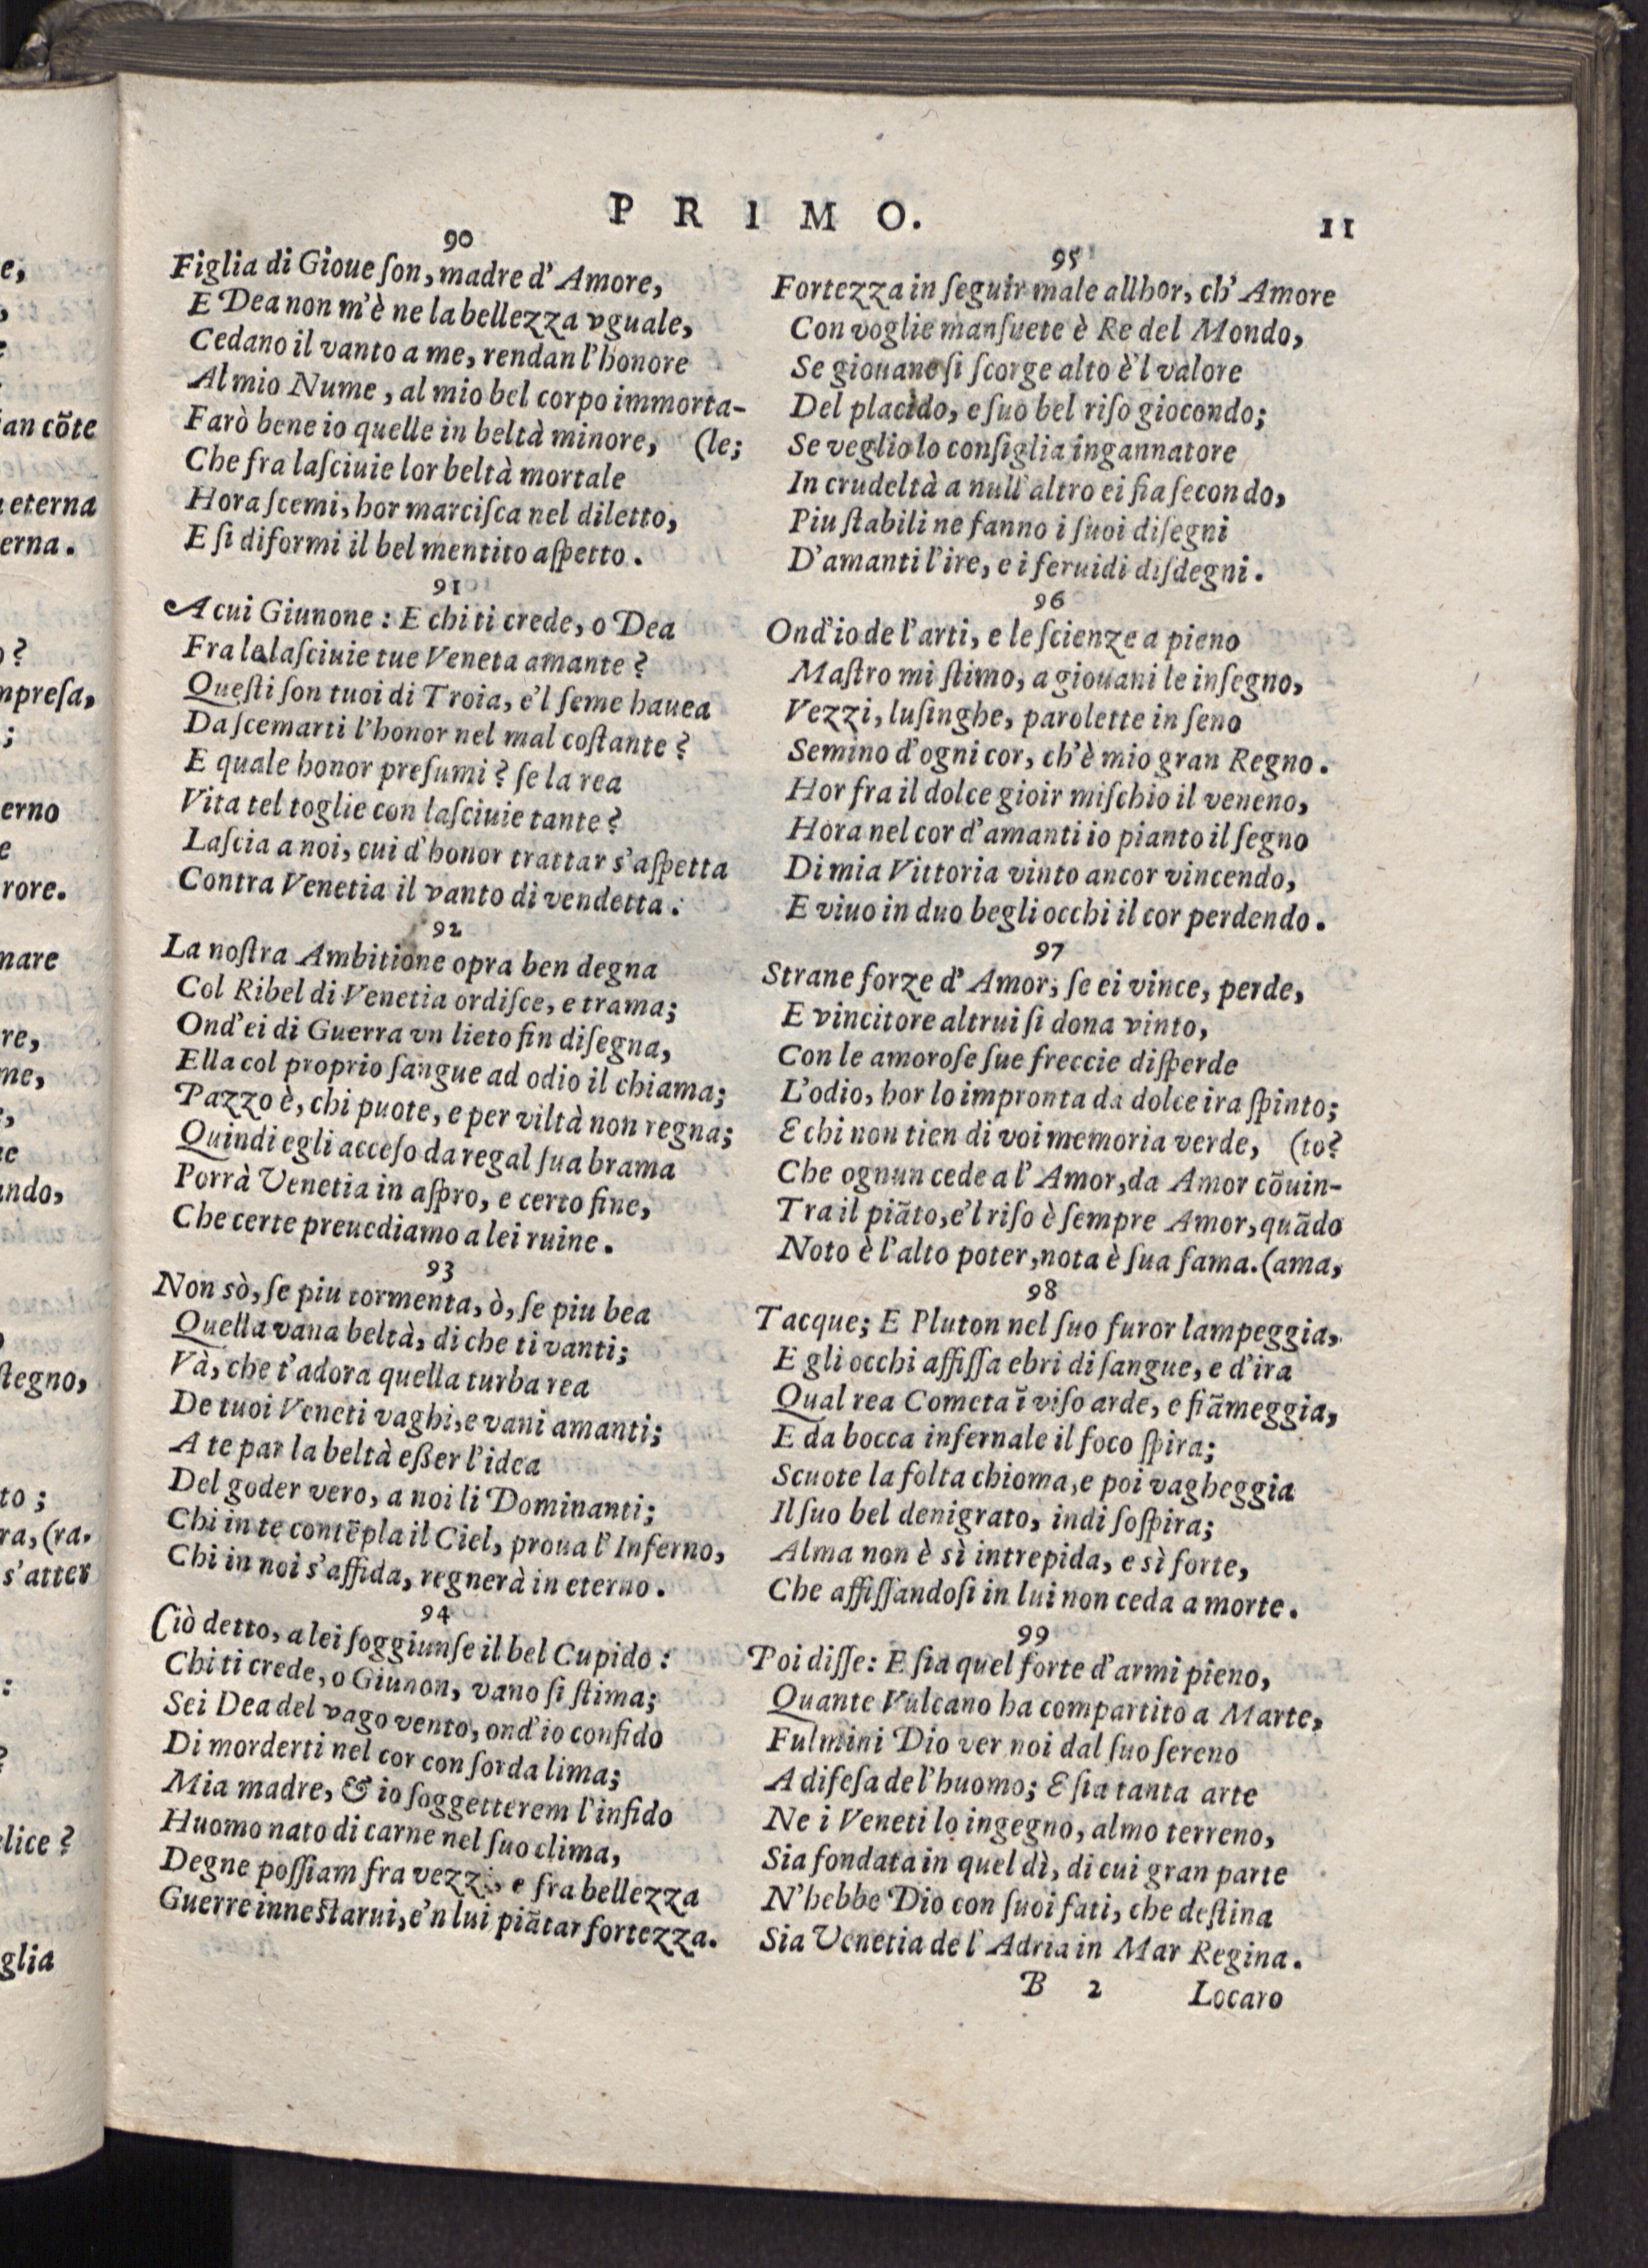 PRIMO.
11
90
Figlia di Gioue ſon, madre d' Amore,
E Dea non m'è ne la bellezza vguale,
Cedano il vanto a me, rendan l'honore
Al mio Nume, al mio bel corpo immorta-
Farò bene io quelle in beltà minore, (le;
Che fra laſciuie lor beltà mortale
Hora ſcemi, hor marciſca nel diletto,
E ſi diformi il bel mentito aſpetto.
91
A cui Giunone: E chi ti crede, o Dea
Fra le laſciuie tue Veneta amante?
Queſti ſon tuoi di Troia, e'l ſeme hauea
Da ſcemarti l'honor nel mal coſtante?
E quale honor preſumi? ſe la rea
Vita tel toglie con laſciuie tante?
Laſcia a noi, cui d'honor trattar s'aſpetta
Contra Venetia il vanto di vendetta.
92
La noſtra Ambitione opra ben degna
Col Ribel di Venetia ordiſce, e trama;
Ond'ei di Guerra vn lieto fin diſegna,
Ella col proprio ſangue ad odio il chiama;
Pazzo è, chi puote, e per viltà non regna;
Quindi egli acceſo da regal ſua brama
Porrà Venetia in aſpro, e certo fine,
Che certe preuediamo a lei ruine.
93
Non sò, ſe piu tormenta, ò, ſe piu bea
Quella vana beltà, di che ti vanti;
Và, che t'adora quella turba rea
De tuoi Veneti vaghi, e vani amanti;
A te par la beltà eßer l'idea
Del goder vero, a noi li Dominanti;
Chi in te contẽpla il Ciel, proua l'Inferno,
Chi in noi s'affida, regnerà in eterno.
94
Ciò detto, a lei ſoggiunſe il bel Cupido:
Chi ti crede, o Giunon, vano ſi ſtima;
Sei Dea del vago vento, ond'io confido
Di morderti nel cor con ſorda lima;
Mia madre, & io ſoggetterem l'infido
Huomo nato di carne nel ſuo clima,
Degne poſſiam fra vezzi, e fra bellezza
Guerre inneſtarui, e'n lui piãtar fortezza.
95
Fortezza in ſeguir male allhor, ch' Amore
Con voglie manſuete è Re del Mondo,
Se giouane ſi ſcorge alto è'l valore
Del placido, e ſuo bel riſo giocondo;
Se veglio lo conſiglia ingannatore
In crudeltà a null'altro ei ſia ſecondo,
Piu ſtabili ne fanno i ſuoi diſegni
D'amanti l'ire, e i feruidi diſdegni.
96
Ond'io de l'arti, e le ſcienze a pieno
Maſtro mi ſtimo, a giouani le inſegno,
Vezzi, luſinghe, parolette in ſeno
Semino d'ogni cor, ch'è mio gran Regno.
Hor fra il dolce gioir miſchio il veneno,
Hora nel cor d'amanti io pianto il ſegno
Di mia Vittoria vinto ancor vincendo,
E viuo in duo begli occhi il cor perdendo.
97
Strane forze d' Amor; ſe ei vince, perde,
E vincitore altrui ſi dona vinto,
Con le amoroſe ſue freccie diſperde
L'odio, hor lo impronta da dolce ira ſpinto;
E chi non tien di voi memoria verde, (to?
Che ognun cede a l' Amor, da Amor cõuin-
Tra il piãto, e'l riſo è ſempre Amor, quãdo
Noto è l'alto poter, nota è ſua fama. (ama,
98
Tacque; E Pluton nel ſuo furor lampeggia,
E gli occhi affiſſa ebri di ſangue, e d'ira
Qual rea Cometa ĩ viſo arde, e fiãmeggia,
E da bocca infernale il foco ſpira;
Scuote la folta chioma, e poi vagheggia
Il ſuo bel denigrato, indi ſoſpira;
Alma non è sì intrepida, e sì forte,
Che affiſſandoſi in lui non ceda a morte.
99
Poi diſſe: E ſia quel forte d'armi pieno,
Quante Vulcano ha compartito a Marte,
Fulmini Dio ver noi dal ſuo ſereno
A difeſa de l'huomo; E ſia tanta arte
Ne i Veneti lo ingegno, almo terreno,
Sia fondata in quel dì, di cui gran parte
N'hebbe Dio con ſuoi fati, che deſtina
Sia Venetia de l' Adria in Mar Regina.
B 2
Locaro
e,
an cõte
eterna
erna.
o?
mpreſa,
;
erno
e
rore.
mare
re,
me,
ando,
ſtegno,
to;
ra, (ra.
s'atter
:
?
elice?
glia